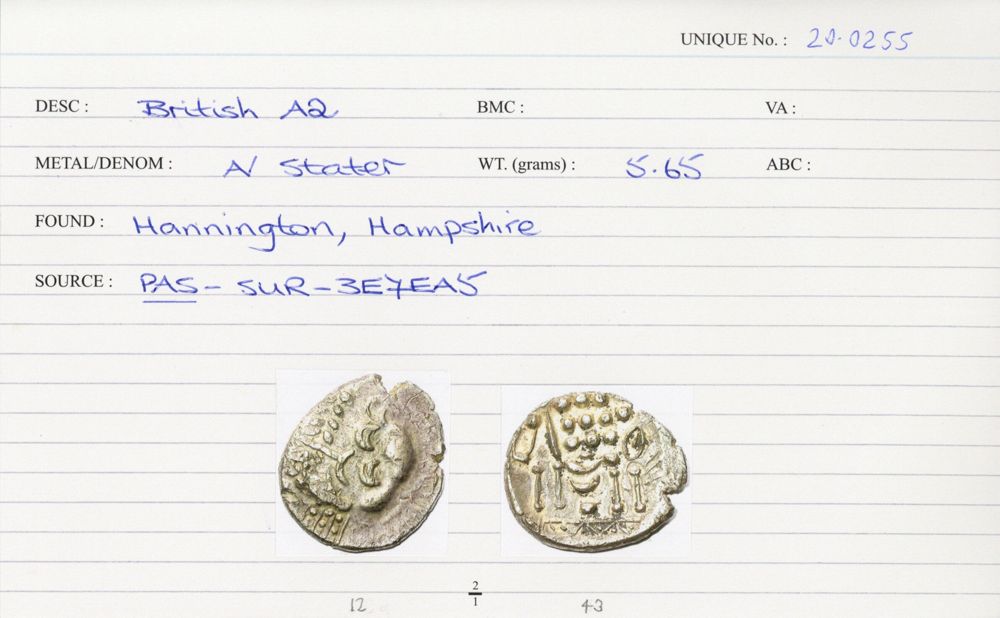 UNIQUE No. : 20.0255
DESC : British A2 BMC : VA :
METAL/DENOM : A/ Stater WT. (grams) : 5.65 ABC :
FOUND : Hannington, Hampshire
SOURCE : PAS - SUR - 3E7EA5
2
1
12 43